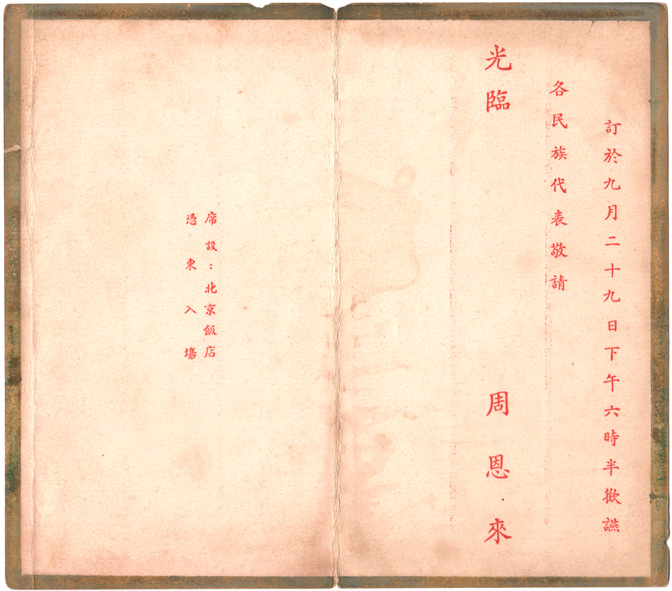 訂於九月二十九日下午六時半歡讌
各民族代表敬請
光臨
周恩來
席設：北京飯店
憑柬入場